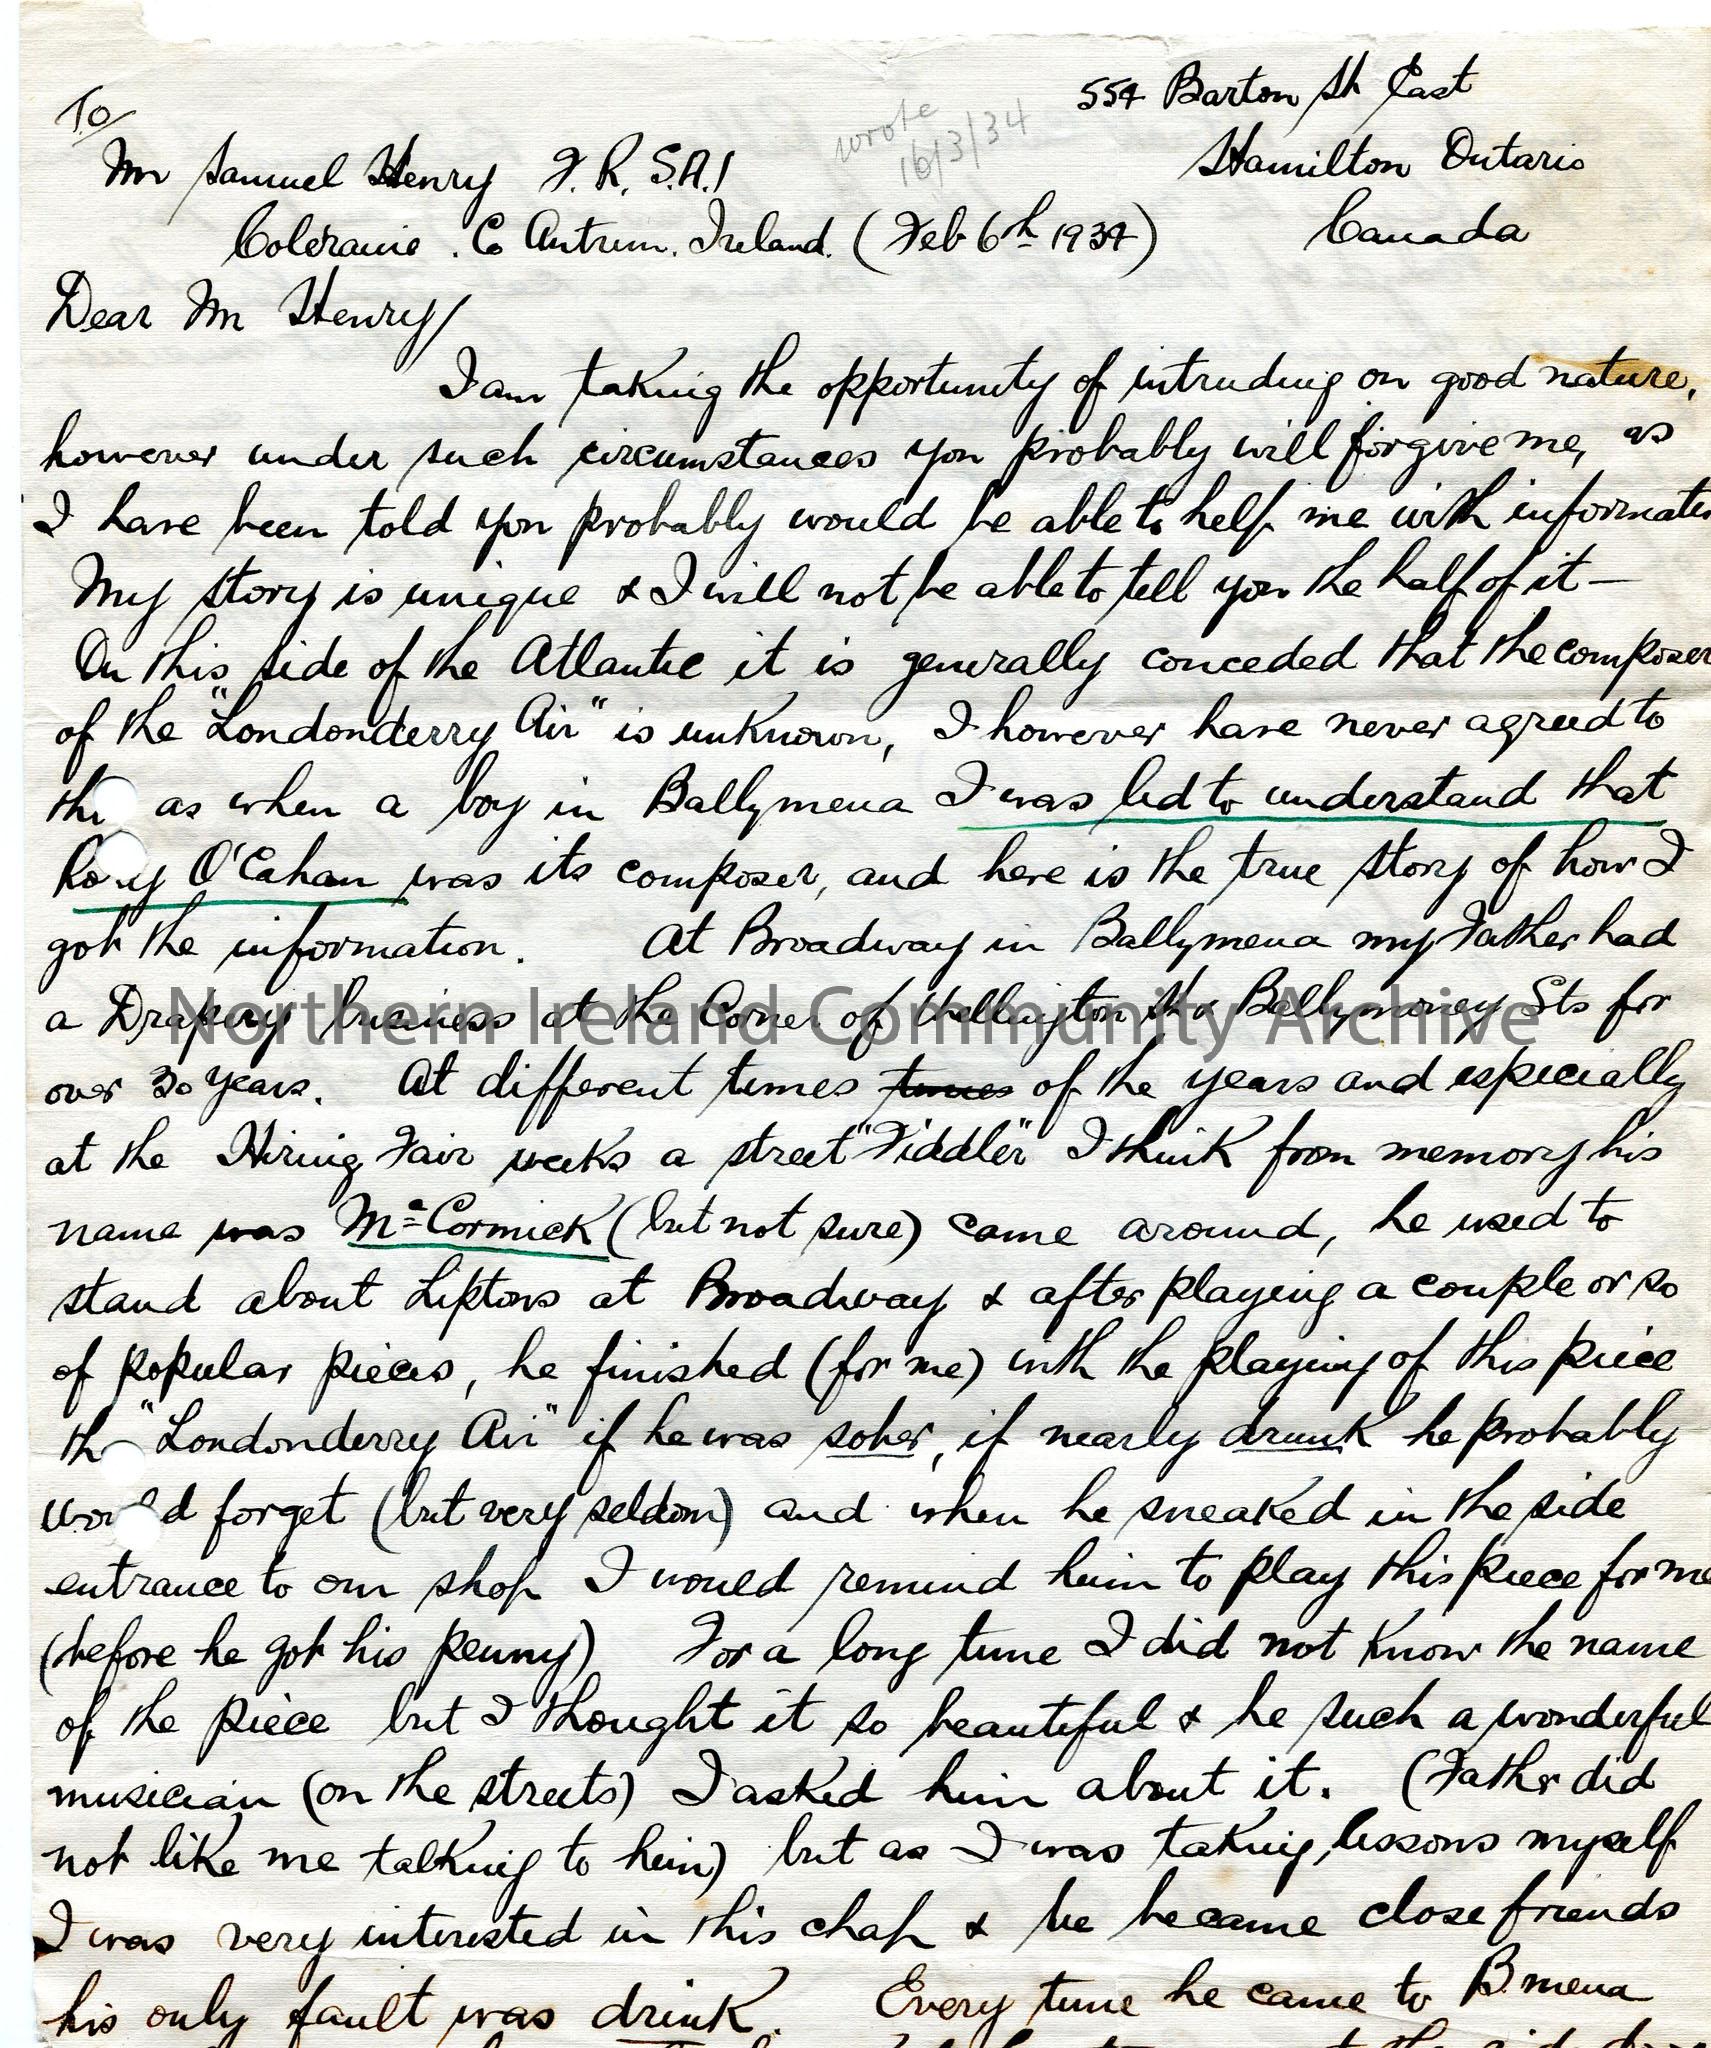 554 Barton St East
To
wrote
16/3/34
Mr Samuel Henry F. R. S.A.I
Hamilton Ontario
Coleraine . Co Antrim. Ireland. (Feb 6th 1934)
Canada
Dear Mr Henry/
I am taking the opportunity of intruding on good nature,
however under such circumstances you probably will forgive me, as
I have been told you probably would be able to help me with informatio
My story is unique & I will not be able to tell you the half of it —
On this side of the Atlantic it is generally conceded that the composer
of the "Londonderry Air" is unknown, I however have never agreed to
thi as when a boy in Ballymena I was led to understand that
Rory O'Cahan was its composer, and here is the true story of how I
got the information. At Broadway in Ballymena my Father had
a Drapery business at the Corner of Wellington St & Ballymoney Sts for
Northern Ireland Community Archive
over 30 years. At different times times of the years and especially
at the Hiring Fair weeks a street "Fiddler" I think from memory his
name was McCormick (but not sure) came around, he used to
stand about Liptons at Broadway & after playing a couple or so
of popular pieces, he finished (for me) with the playing of this piece
th "Londonderry Air" if he was sober, if nearly drunk he probably
would forget (but very seldom) and when he sneaked in the side
entrance to our shop I would remind him to play this piece for me
(before he got his penny) For a long time I did not know the name
of the piece but I thought it so beautiful & he such a wonderful
musician (on the streets) I asked him about it. (Father did
not like me talking to him) but as I was taking lessons myself
I was very interested in this chap & he became close friends
his only fault was drink. Every time he came to B.mena